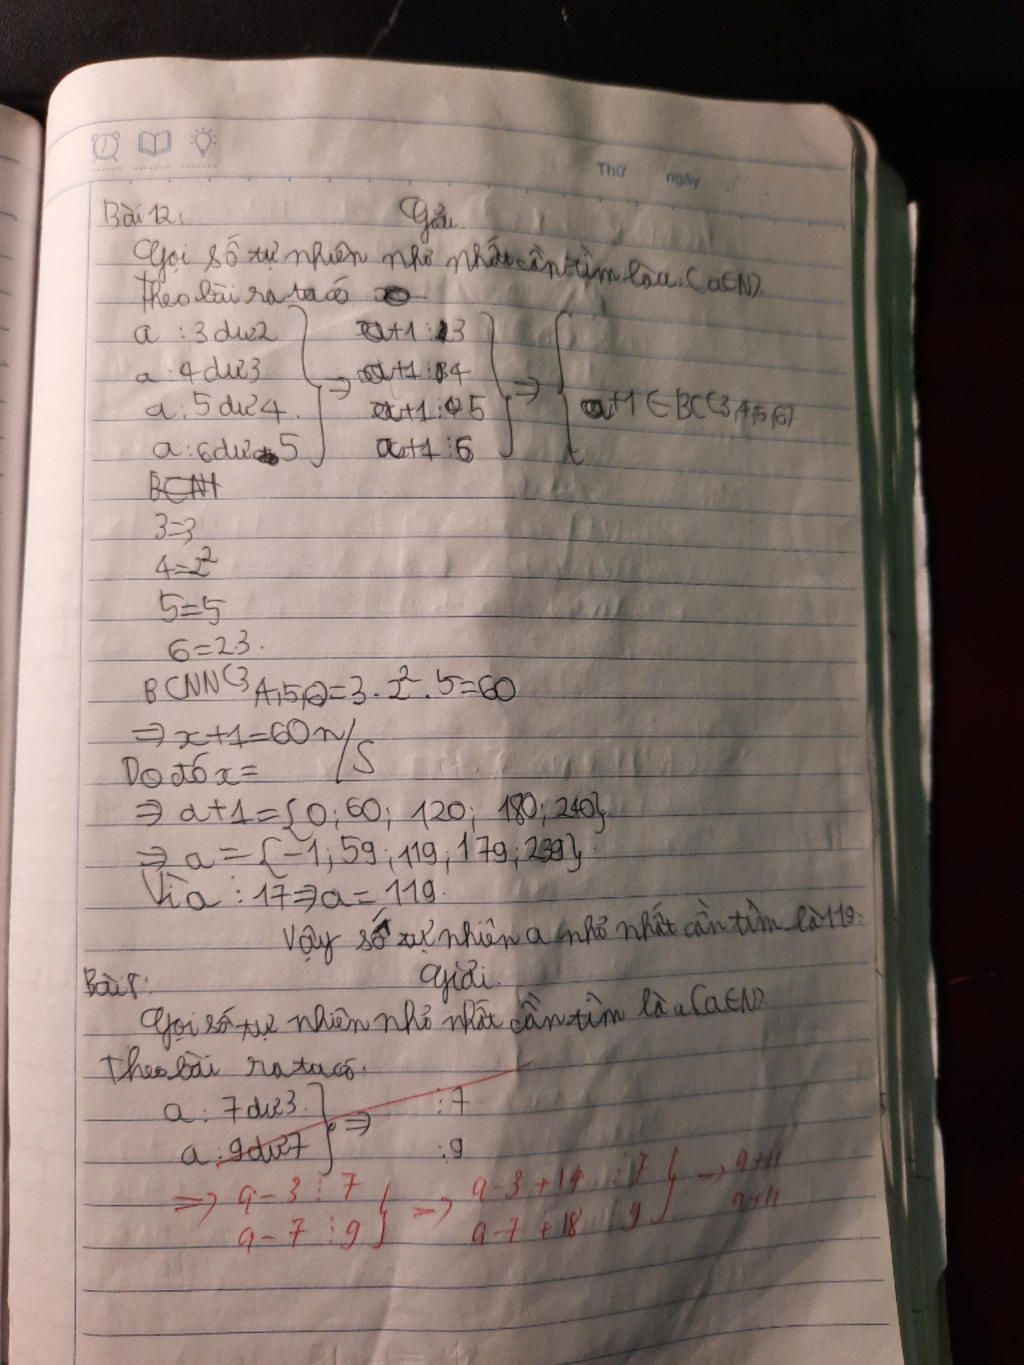 Thứ ngày
Bài 12: Giải
Gọi số tự nhiên nhỏ nhất cần tìm là a. (a∈N)
Theo bài ra ta có
a : 3 dư 2 a+1 ⋮ 3
a : 4 dư 3 ⇒ a+1 ⋮ 4 ⇒
a : 5 dư 4 a+1 ⋮ 5 a+1 ∈ BC(3,4,5,6)
a : 6 dư 5 a+1 ⋮ 6
3=3
4=2²
5=5
6=2.3.
BCNN(3,4,5,6)=3.2².5=60
⇒ x+1=60n/S
Do đó x=
⇒ a+1={0; 60; 120; 180; 240}
⇒ a={-1; 59; 119; 179; 239}
Vì a ⋮ 17⇒a=119.
Vậy số tự nhiên a nhỏ nhất cần tìm là 119.
Bài 8: Giải.
Gọi số tự nhiên nhỏ nhất cần tìm là a (a∈N)
Theo bài ra ta có.
a : 7 dư 3 ⋮ 7
a : 9 dư 7 ⇒ ⋮ 9
⇒ a-3 ⋮ 7 ⇒ a-3+14 ⋮ 7 ⇒ a+11
a-7 ⋮ 9 a-7+18 ⋮ 9 a+11